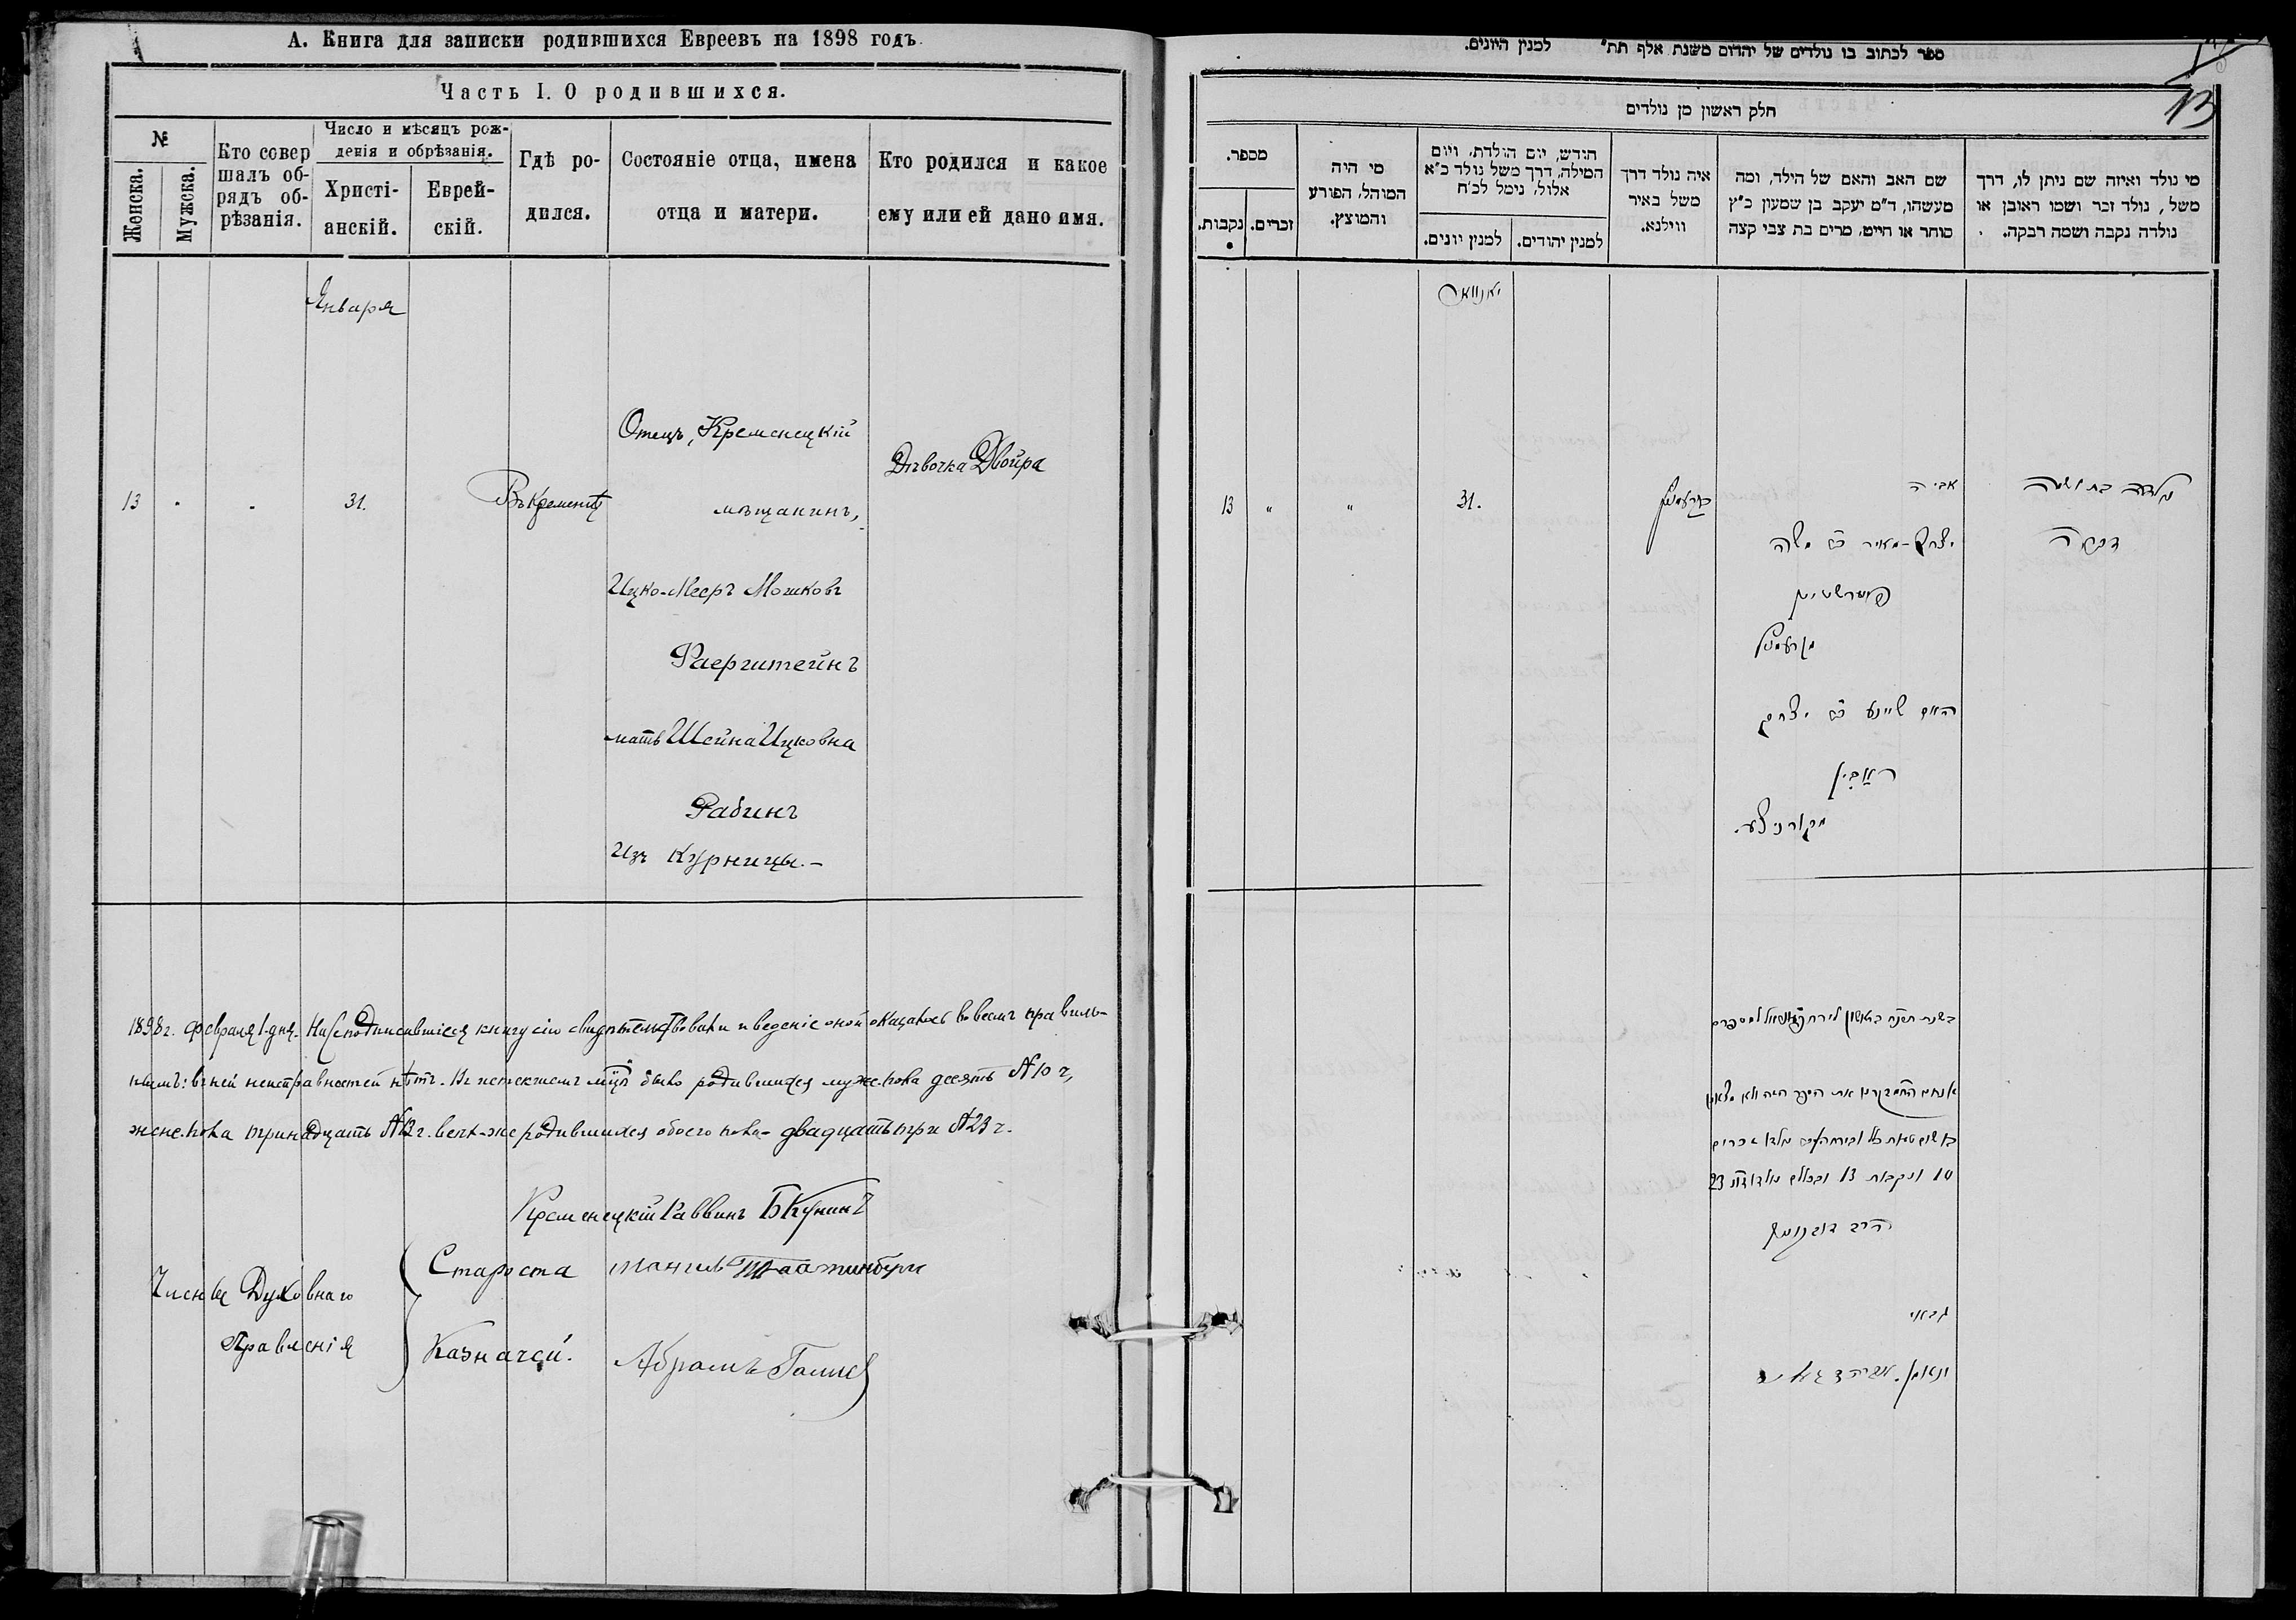 А. Книга для записки родившихся Евреевъ на 1898 годъ
Часть I. О родившихся.
№
Женска.
Мужска.
Кто совер
шалъ об-
рядъ об-
рѣзанія.
Число и мѣсяцъ рож-
денія и обрѣзанія.
Христі-
анскій.
Еврей-
скій.
Гдѣ ро-
дился.
Состояніе отца, имена
отца и матери.
Кто родился и какое
ему или ей дано имя.
Января
13
31.
Въ Кременцѣ
Отецъ, Кременецкій
мѣщанинъ,
Ицко-Мееръ Мошковъ
Фаерштейнъ
мать Шейна Ицковна
Рабинъ
изъ Курницы.-
Дѣвочка Двойра
1898 г. Февраля 1-дня. Нижеподписавшіеся книгу сію свидѣтельствовали и веденіе оной оказалось во всемъ правиль-
нымъ: въ ней неисправностей нѣтъ. Въ истекшемъ м-цѣ было родившихся муж. пола десять №10 г,
жене. пола тринадцать №13 г. всѣхъ-же родившихся обоего пола- двадцать три №23 г.
Кременецкій Раввинъ Б Кунинъ
Члены Духовнаго
Правленія
Староста
Казначей.
Абрамъ
ספר לכתוב בו נולדים של יהדום משנת אלף תת״ למנין היונים.
13
חלק ראשון מן נולדים
מספר.
נקבות.
זכרים.
מי היה
המוהל, הפורע
והמוצץ.
חודש, יום הולדת, ויום
המילה, דרך משל נולד כ״א
אלול, נימל לכ״ח
למנין יונים.
למנין יהודים.
איה נולד דרך
משל באיר
ווילנא.
שם האב והאם של הילד, ומה
מעשהו, ד״מ יעקב בן שמעון כ״ץ
סוחר או חייט, מרים בת צבי קצה
מי נולד ואיזה שם ניתן לו, דרך
משל, נולד זכר ושמו ראובן או
נולדה נקבה ושמה רבקה.
יאנואר
13
"
"
31.
אביה
יצחק-מאיר ב״מ משה
פייערשטיין
האם שיינע ב״מ יצחק
ראבין
נולדה בת ושמה
דבורה